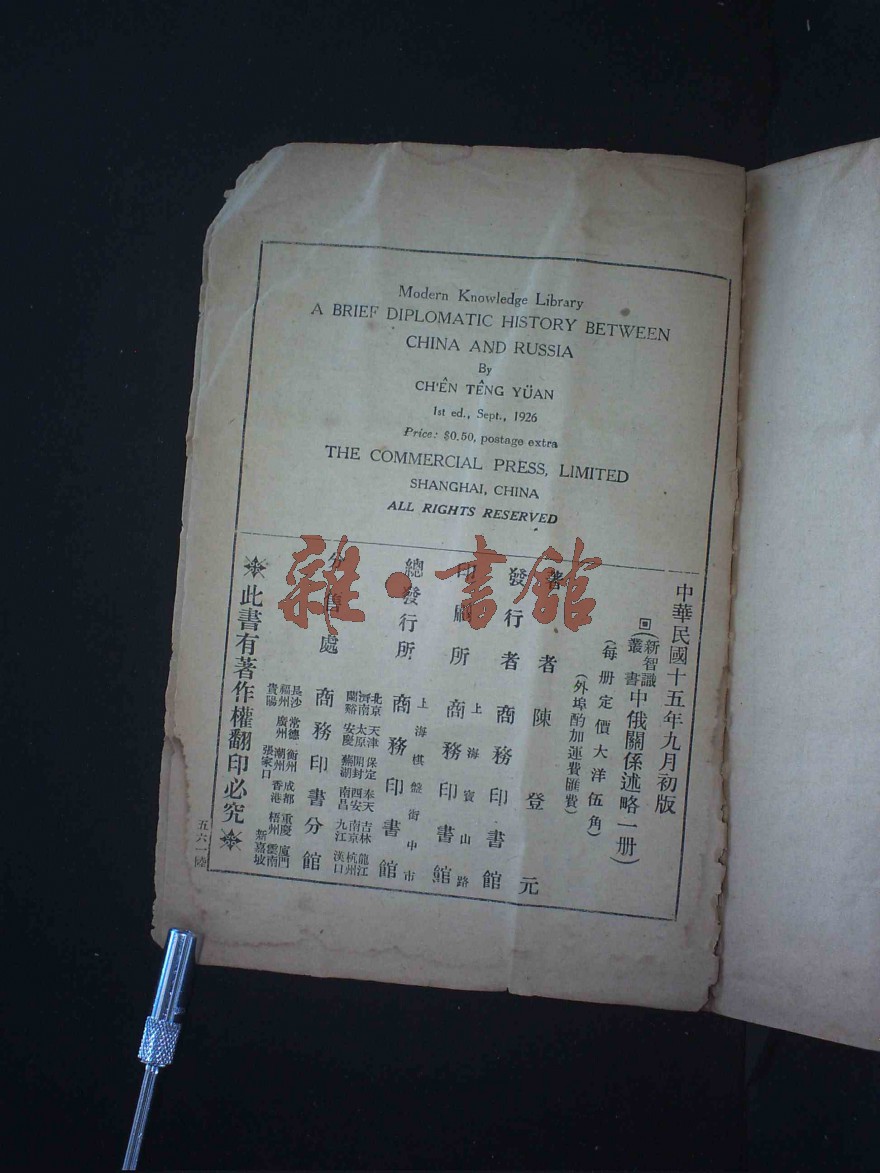 Modern Knowledge Library
A BRIEF DIPLOMATIC HISTORY BETWEEN
CHINA AND RUSSIA
By
CH'ÊN TÊNG YÜAN
1st ed., Sept., 1926
Price: $0.50, postage extra
THE COMMERCIAL PRESS, LIMITED
SHANGHAI, CHINA
ALL RIGHTS RESERVED
雜·書館
中華民國十五年九月初版
(新智識叢書中俄關係述略一册)
(每册定價大洋伍角)
(外埠酌加運費匯費)
著者 陳登元
發行者 商務印書館
印刷所 上海寶山路 商務印書館
總發行所 上海棋盤街中市 商務印書館
分售處 商務印書分館
北京 天津 保定 奉天 吉林 龍江
濟南 太原 開封 西安 南京 杭州
蘭谿 安慶 蕪湖 南昌 九江 漢口
長沙 常德 衡州 成都 重慶 廈門
福州 廣州 潮州 香港 梧州 雲南
貴陽 張家口 新嘉坡
此書有著作權翻印必究
五六一陸